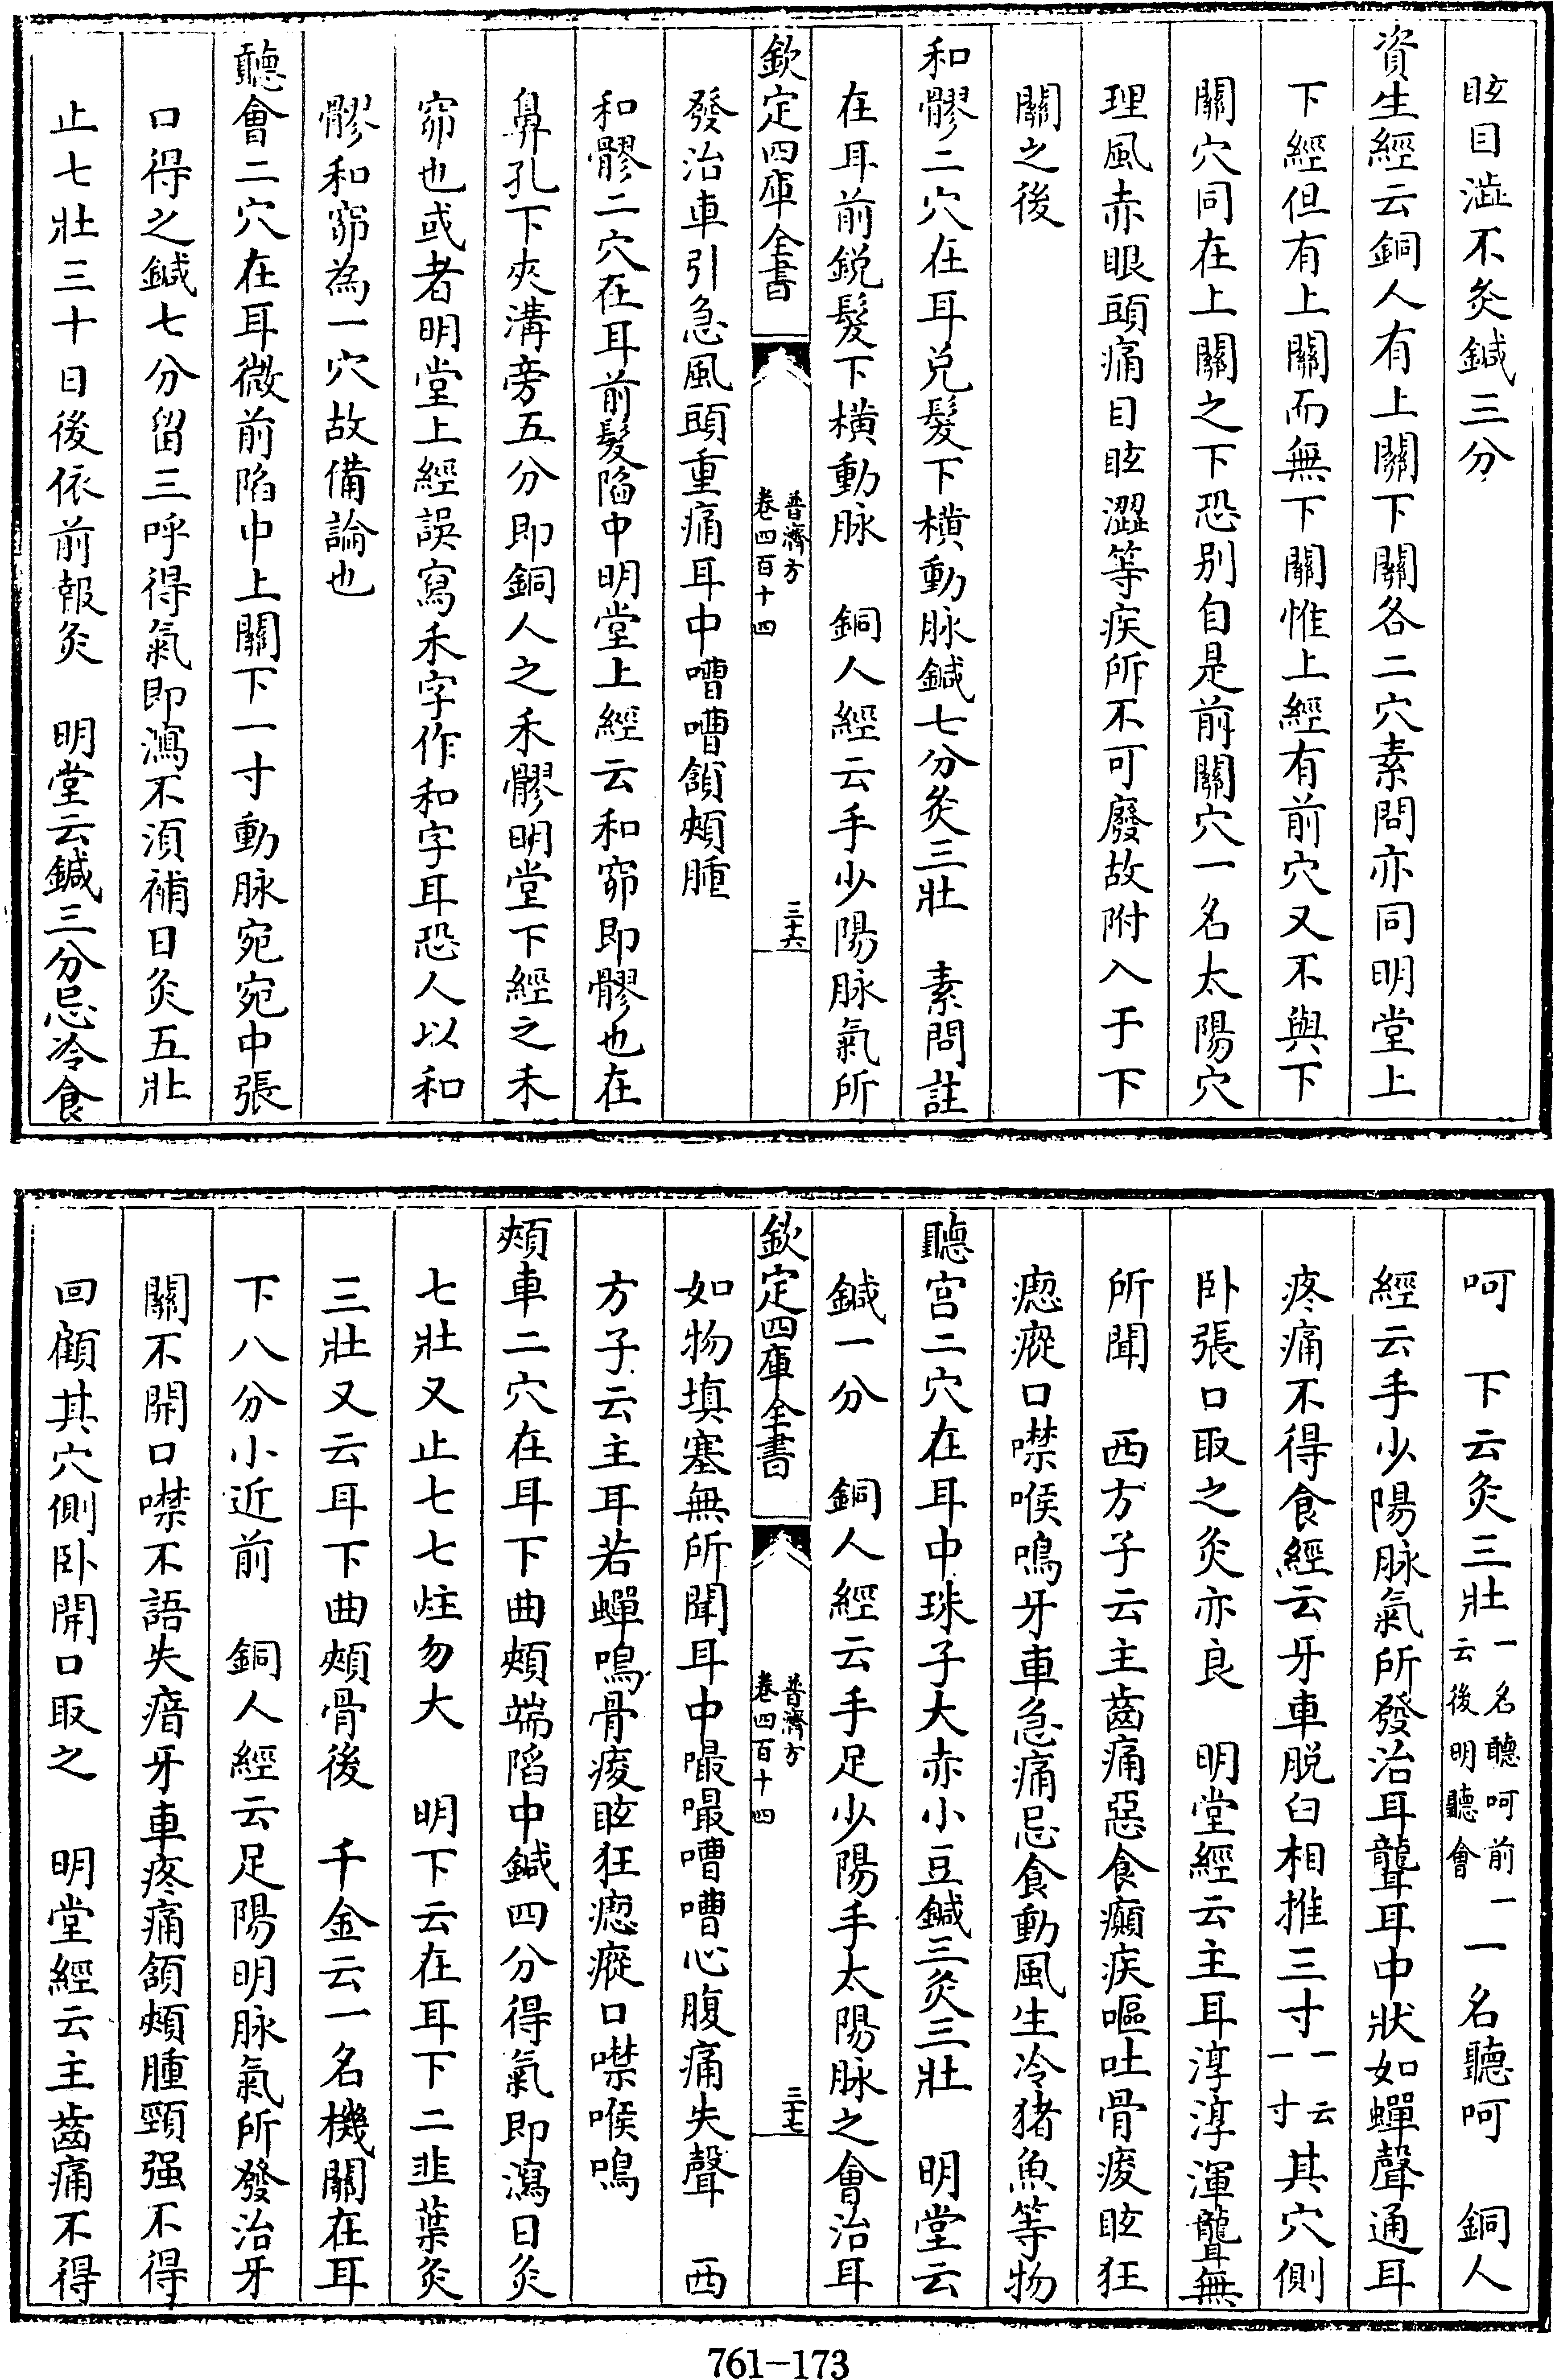 眩目澁不灸鍼三分
資生經云銅人有上關下關各二穴素問亦同明堂上
下經但有上關而無下關惟上經有前穴又不與下
關穴同在上關之下恐别自是前關穴一名太陽穴
理風赤眼頭痛目眩澀等疾所不可廢故附入于下
關之後
和髎二穴在耳兑髮下横動脉鍼七分灸三壯　素問註
在耳前鋭髮下横動脉　銅人經云手少陽脉氣所
欽定四庫全書
普濟方
卷四百十四
三十六
發治車引急風頭重痛耳中嘈嘈頷頰腫
和髎二穴在耳前髮陷中明堂上經云和窌即髎也在
鼻孔下夾溝旁五分即銅人之禾髎明堂下經之禾
窌也或者明堂上經誤寫禾字作和字耳恐人以和
髎和窌為一穴故備論也
聽會二穴在耳微前陷中上關下一寸動脉宛宛中張
口得之鍼七分留三呼得氣即瀉不須補日灸五壯
止七壯三十日後依前報灸　明堂云鍼三分忌冷食
呵　下云灸三壯一名聽呵前一云後明聽會一名聽呵　銅人
經云手少陽脉氣所發治耳聾耳中狀如蟬聲通耳
疼痛不得食經云牙車脱臼相推三寸一云一寸其穴側
卧張口取之灸亦良　明堂經云主耳淳淳渾聾無
所聞　西方子云主齒痛惡食癲疾嘔吐骨痠眩狂
瘛瘲口噤喉鳴牙車急痛忌食動風生冷猪魚等物
聽宫二穴在耳中珠子大赤小豆鍼三灸三壯　明堂云
鍼一分　銅人經云手足少陽手太陽脉之會治耳
欽定四庫全書
普濟方
卷四百十四
三十七
如物填塞無所聞耳中嘬嘬嘈嘈心腹痛失聲　西
方子云主耳若蟬鳴骨痠眩狂瘛瘲口噤喉鳴
頰車二穴在耳下曲頰端陷中鍼四分得氣即瀉日灸
七壯又止七七炷勿大　明下云在耳下二韭葉灸
三壯又云耳下曲頰骨後　千金云一名機關在耳
下八分小近前　銅人經云足陽明脉氣所發治牙
關不開口噤不語失瘖牙車疼痛頷頰腫頸强不得
回顧其穴側卧開口取之　明堂經云主齒痛不得
761-173